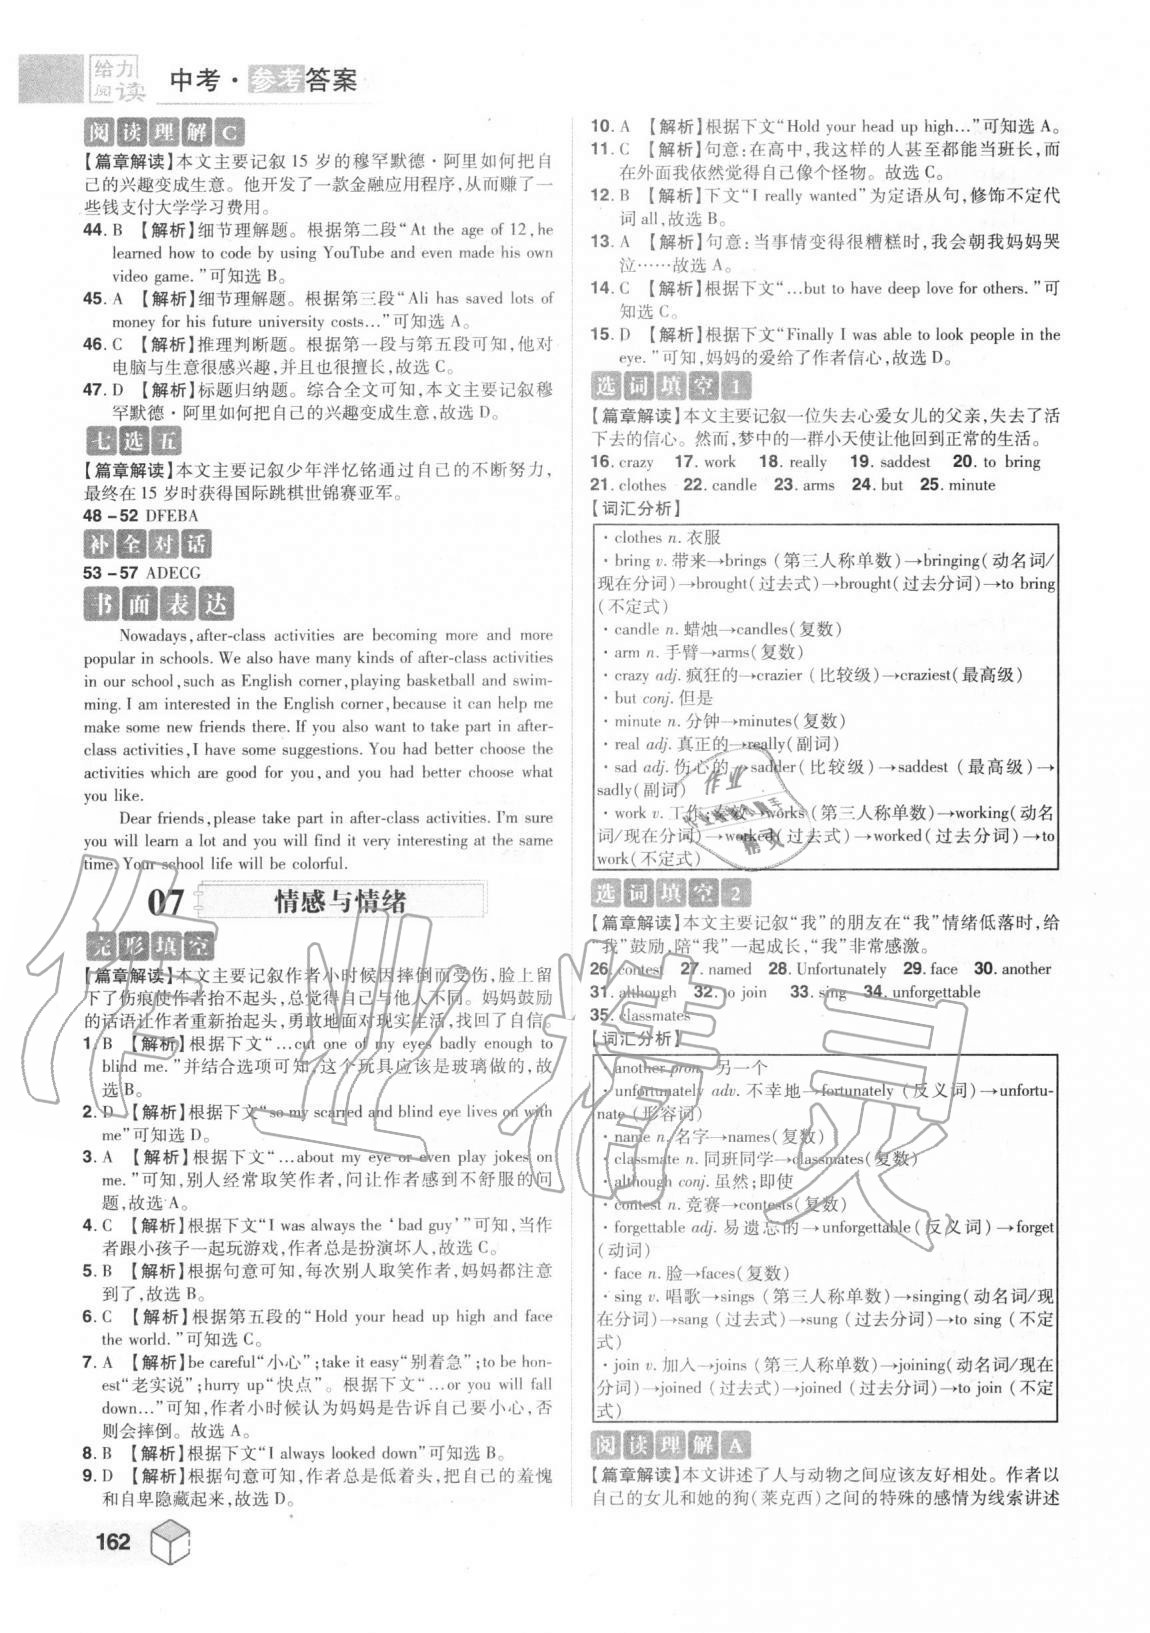 给力阅读 中考·参考答案
阅读理解C
【篇章解读】本文主要记叙 15 岁的穆罕默德·阿里如何把自
己的兴趣变成生意。他开发了一款金融应用程序,从而赚了一
些钱支付大学学习费用。
44. B 【解析】细节理解题。根据第二段“At the age of 12,he
learned how to code by using YouTube and even made his own
video game.”可知选 B。
45. A 【解析】细节理解题。根据第三段“Ali has saved lots of
money for his future university costs…”可知选 A。
46. C 【解析】推理判断题。根据第一段与第五段可知,他对
电脑与生意很感兴趣,并且也很擅长,故选 C。
47. D 【解析】标题归纳题。综合全文可知,本文主要记叙穆
罕默德·阿里如何把自己的兴趣变成生意,故选 D。
七选五
【篇章解读】本文主要记叙少年泮忆铭通过自己的不断努力,
最终在 15 岁时获得国际跳棋世锦赛亚军。
48 – 52 DFEBA
补全对话
53 – 57 ADECG
书面表达
Nowadays,after-class activities are becoming more and more
popular in schools. We also have many kinds of after-class activities
in our school,such as English corner,playing basketball and swim-
ming. I am interested in the English corner,because it can help me
make some new friends there. If you also want to take part in after-
class activities,I have some suggestions. You had better choose the
activities which are good for you,and you had better choose what
you like.
Dear friends,please take part in after-class activities. I'm sure
you will learn a lot and you will find it very interesting at the same
time. Your school life will be colorful.
07 情感与情绪
完形填空
【篇章解读】本文主要记叙作者小时候因摔倒而受伤,脸上留
下了伤痕使作者抬不起头,总觉得自己与他人不同。妈妈鼓励
的话语让作者重新抬起头,勇敢地面对现实生活,找回了自信。
1. B 【解析】根据下文“…cut one of my eyes badly enough to
blind me.”并结合选项可知,这个玩具应该是玻璃做的,故
选 B。
2. D 【解析】根据下文“so my scarred and blind eye lives on with
me”可知选 D。
3. A 【解析】根据下文“…about my eye or even play jokes on
me.”可知,别人经常取笑作者,问让作者感到不舒服的问
题,故选 A。
4. C 【解析】根据下文“I was always the ‘bad guy’”可知,当作
者跟小孩子一起玩游戏,作者总是扮演坏人,故选 C。
5. B 【解析】根据句意可知,每次别人取笑作者,妈妈都注意
到了,故选 B。
6. C 【解析】根据第五段的“Hold your head up high and face
the world.”可知选 C。
7. A 【解析】be careful“小心”;take it easy“别着急”;to be hon-
est“老实说”;hurry up“快点”。根据下文“…or you will fall
down…”可知,作者小时候认为妈妈是告诉自己要小心,否
则会摔倒。故选 A。
8. B 【解析】根据下文“I always looked down”可知选 B。
9. D 【解析】根据句意可知,作者总是低着头,把自己的羞愧
和自卑隐藏起来,故选 D。
162
10. A 【解析】根据下文“Hold your head up high…”可知选 A。
11. C 【解析】句意:在高中,我这样的人甚至都能当班长,而
在外面我依然觉得自己像个怪物。故选 C。
12. B 【解析】下文“I really wanted”为定语从句,修饰不定代
词 all,故选 B。
13. A 【解析】句意:当事情变得很糟糕时,我会朝我妈妈哭
泣……故选 A。
14. C 【解析】根据下文“…but to have deep love for others.”可
知选 C。
15. D 【解析】根据下文“Finally I was able to look people in the
eye.”可知,妈妈的爱给了作者信心,故选 D。
选词填空1
【篇章解读】本文主要记叙一位失去心爱女儿的父亲,失去了活
下去的信心。然而,梦中的一群小天使让他回到正常的生活。
16. crazy 17. work 18. really 19. saddest 20. to bring
21. clothes 22. candle 23. arms 24. but 25. minute
【词汇分析】
·clothes n. 衣服
·bring v. 带来→brings (第三人称单数)→bringing(动名词/
现在分词)→brought(过去式)→brought(过去分词)→to bring
(不定式)
·candle n. 蜡烛→candles(复数)
·arm n. 手臂→arms(复数)
·crazy adj. 疯狂的→crazier (比较级)→craziest(最高级)
·but conj. 但是
·minute n. 分钟→minutes(复数)
·real adj. 真正的→really(副词)
·sad adj. 伤心的→sadder(比较级)→saddest(最高级)→
sadly(副词)
·work v. 工作;奏效→works(第三人称单数)→working(动名
词/现在分词)→worked(过去式)→worked(过去分词)→to
work(不定式)
选词填空2
【篇章解读】本文主要记叙“我”的朋友在“我”情绪低落时,给
“我”鼓励,陪“我”一起成长,“我”非常感激。
26. contest 27. named 28. Unfortunately 29. face 30. another
31. although 32. to join 33. sing 34. unforgettable
35. classmates
【词汇分析】
·another pron. 另一个
·unfortunately adv. 不幸地→fortunately (反义词)→unfortu-
nate (形容词)
·name n. 名字→names(复数)
·classmate n. 同班同学→classmates(复数)
·although conj. 虽然;即使
·contest n. 竞赛→contests(复数)
·forgettable adj. 易遗忘的→unforgettable(反义词)→forget
(动词)
·face n. 脸→faces(复数)
·sing v. 唱歌→sings (第三人称单数)→singing(动名词/现
在分词)→sang (过去式)→sung (过去分词)→to sing (不定
式)
·join v. 加入→joins (第三人称单数)→joining(动名词/现在
分词)→joined (过去式)→joined (过去分词)→to join (不定
式)
阅读理解A
【篇章解读】本文讲述了人与动物之间应该友好相处。作者以
自己的女儿和她的狗(莱克西)之间的特殊的感情为线索讲述
作业精灵